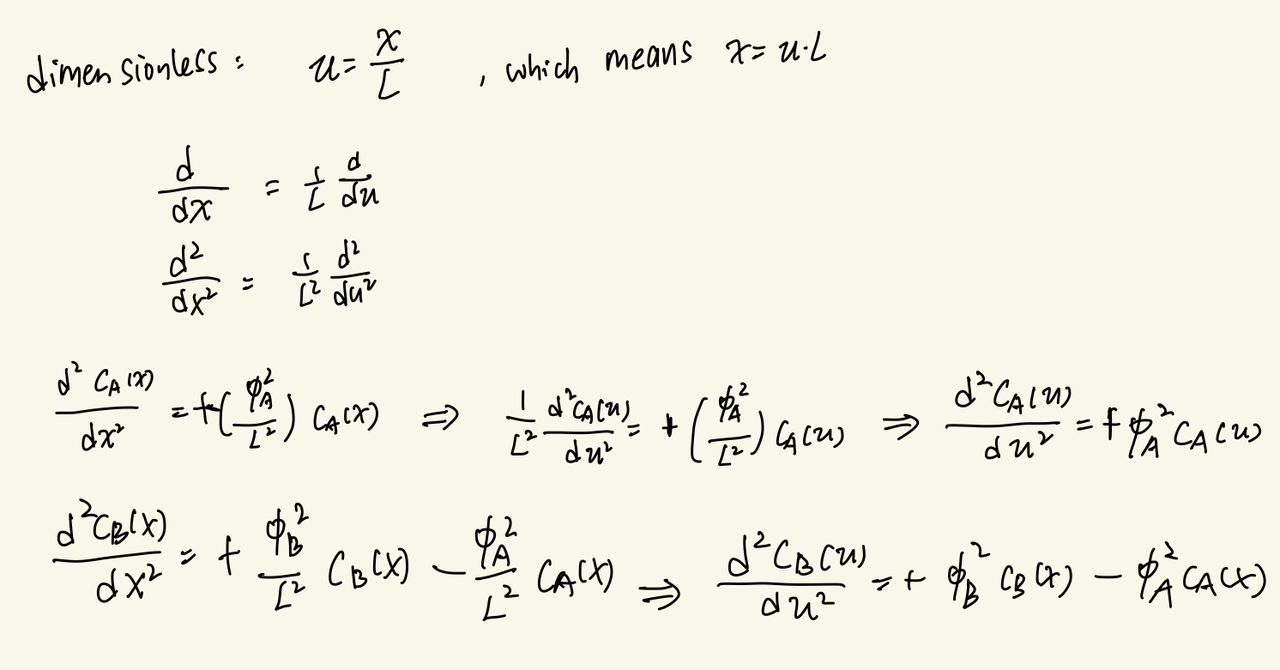 dimensionless: u = x/L , which means x = u·L
d/dx = 1/L d/du
d²/dx² = 1/L² d²/du²
d² C_A(x)/dx² = +(φ_A²/L²) C_A(x) ⇒ 1/L² d²C_A(u)/du² = +(φ_A²/L²) C_A(u) ⇒ d²C_A(u)/du² = + φ_A² C_A(u)
d²C_B(x)/dx² = + φ_B²/L² C_B(x) − φ_A²/L² C_A(x) ⇒ d²C_B(u)/du² = + φ_B² C_B(x) − φ_A² C_A(x)